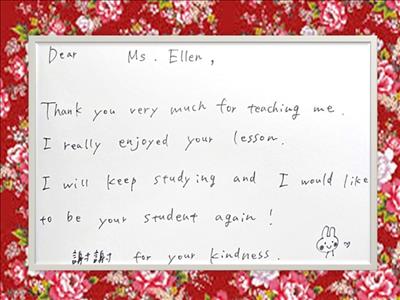 Dear Ms. Ellen,
Thank you very much for teaching me.
I really enjoyed your lesson.
I will keep studying and I would like
to be your student again!
謝謝 for your kindness.